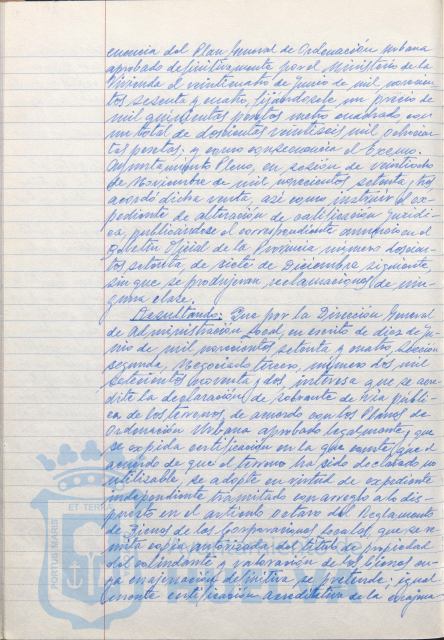 cuencia del Plan General de Ordenación urbana
aprobado definitivamente por el Ministerio de la
Vivienda el veinticuatro de Junio de mil novecien-
tos sesenta y cuatro, fijándosele un precio de
mil quinientas pesetas metro cuadrado, con
un total de doscientas veintiseis mil ochocien-
tas pesetas, y como consecuencia el Excmo.
Ayuntamiento Pleno, en sesión de veintiocho
de Noviembre de mil novecientos setenta y tres
acordó dicha venta, así como instruir el ex-
pediente de alteración de calificación jurídi-
ca, publicándose el correspondiente anuncio en el
Boletín Oficial de la Provincia número doscien-
tos setenta, de siete de Diciembre siguiente,
sin que se produjeran reclamaciones de nin-
guna clase.
Resultando: Que por la Dirección General
de Administración Local, en escrito de diez de Ju-
nio de mil novecientos setenta y cuatro, Sección
segunda, Negociado tercero, número dos mil
setecientos noventa y dos interesa que se acre-
dite la declaración de sobrante de vía públi-
ca de los terrenos de acuerdo con los Planos de
Ordenación Urbana aprobado legalmente; que
se expida certificación en la que conste que el
acuerdo de que el terreno ha sido declarado no
utilizable, se adopte en virtud de expediente
independiente tramitado con arreglo a lo dis-
puesto en el artículo octavo del Reglamento
de Bienes de las Corporaciones Locales; que se re-
mita copia autorizada del título de propiedad
del colindante y valoración de los bienes cu-
ya enajenación definitiva se pretende; igual
mente certificación acreditativa de la
ET TERRA
PORTUM MARIS